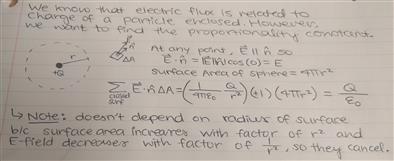 We know that electric flux is related to
charge of a particle enclosed. However,
we want to find the proportionality constant.
At any point, E⃗ ∥ n̂ so
E⃗ · n̂ = |E⃗||n̂|cos(0) = E
Surface Area of sphere = 4πr²
r
+Q
n̂
E⃗
ΔA
∑ closed surf E⃗ · n̂ ΔA = (1/4πε₀ Q/r²)(+1)(4πr²) = Q/ε₀
↳ Note: doesn't depend on radius of surface
b/c surface area increases with factor of r² and
E-field decreases with factor of 1/r², so they cancel.